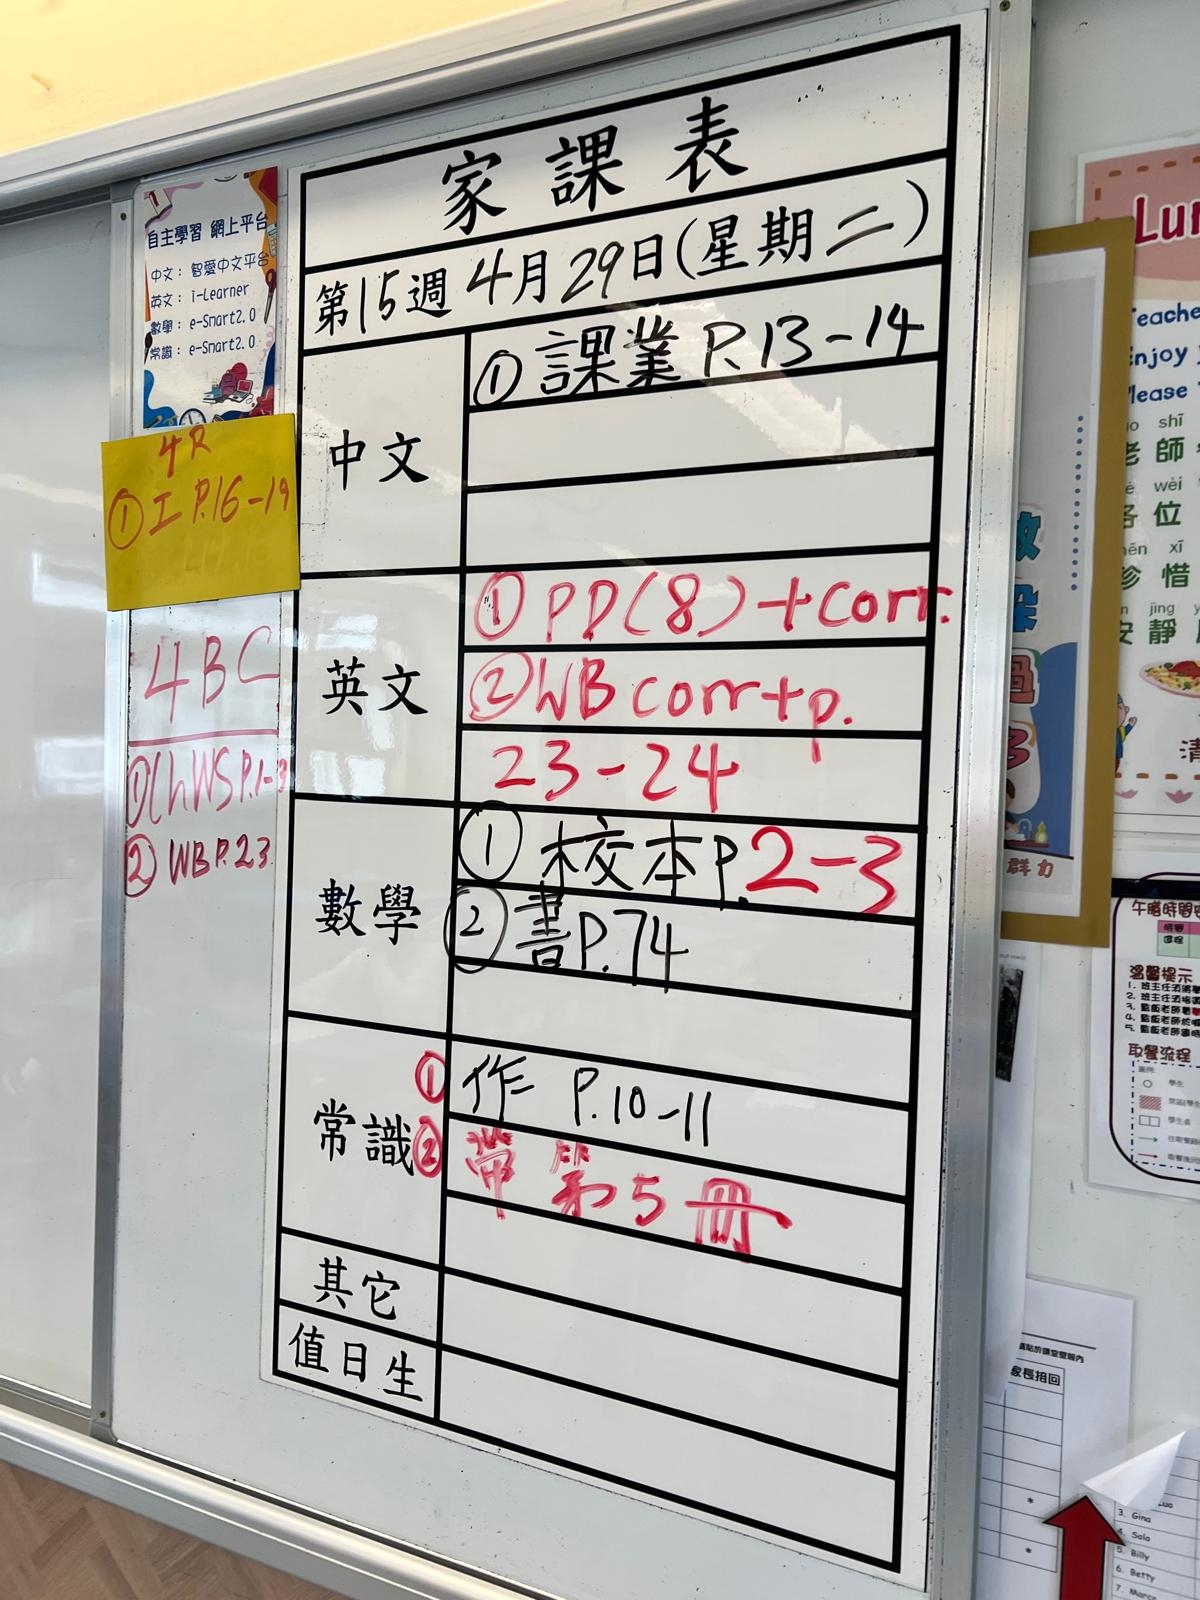 家課表
第15週 4月29日(星期二)
中文
① 課業 P.13-14
英文
① PD(8)+corr.
② WB corr+p.
23-24
數學
① 校本P.2-3
② 書P.74
常識
① 作 P.10-11
② 帶第5冊
其它
值日生
自主學習 網上平台
中文： 智愛中文平台
英文： i-Learner
數學： e-Smart2.0
常識： e-Smart2.0
4R
① 工 P.16-19
4BC
① ChWS P.1-3
② WB P.23
Lun
Teache
Enjoy y
Please
shī
老師
wèi
各位
xī
珍惜
jìng
安靜
清
群力
溫馨提示
取餐流程
學生
家長捐回
*
*
3. Gina
4. Salo
5. Billy
6. Betty
7. Marco